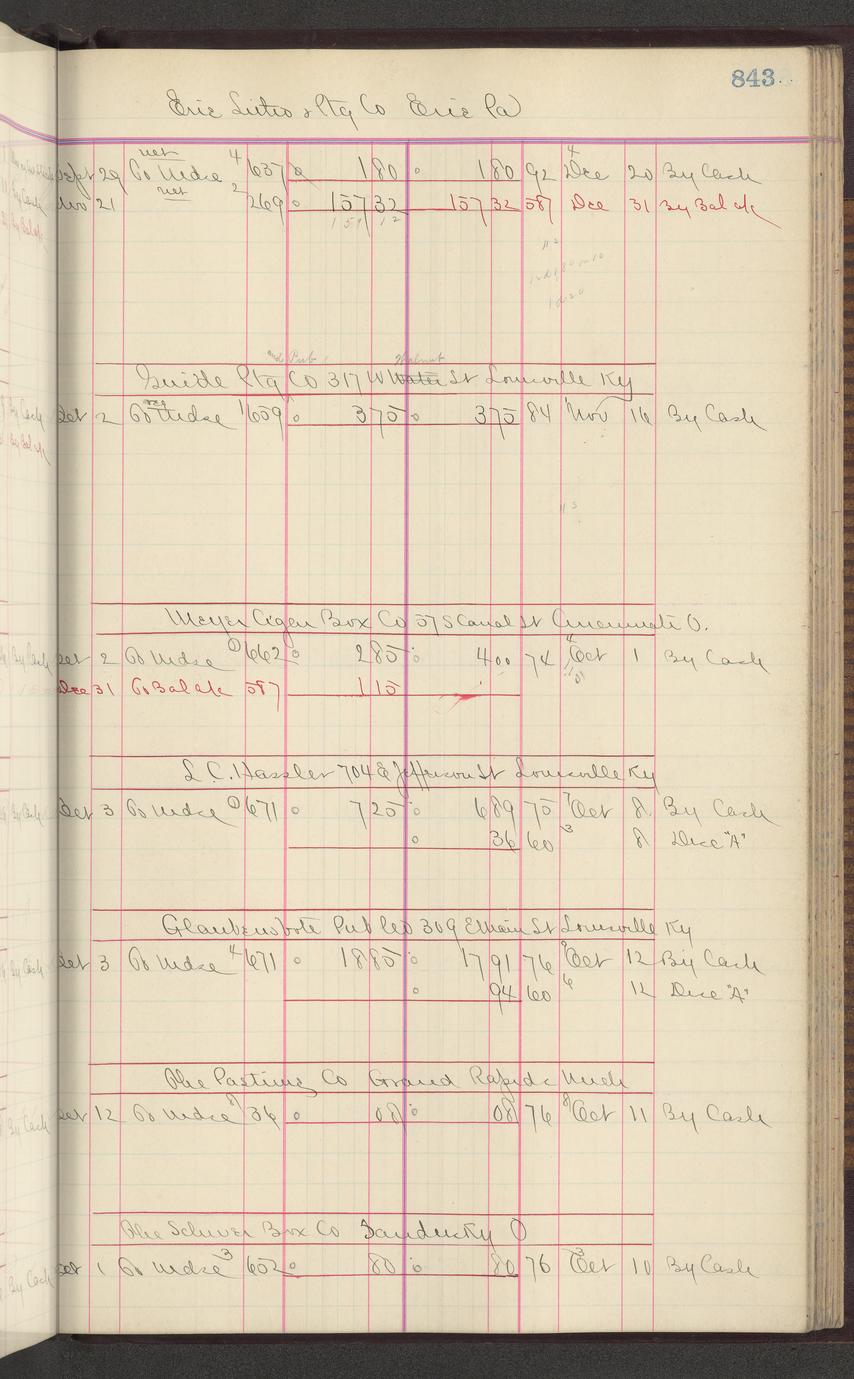 843
Erie Litho & Ptg Co Erie Pa
net
Sept 29 To Mdse 4 637 180 180 92 4 Dec 20 By Cash
net
Nov 21 2 269 157 32 157 32 587 Dec 31 By Bal a/c
& Pub Walnut
Guide Ptg Co 317 W Water St Louisville Ky
Oct 2 To Mdse 1 659 375 375 84 1 Nov 16 By Cash
Meyer Cigar Box Co 57 S Canal St Cincinnati O.
Oct 2 To Mdse 0 662 285 400 74 4 Oct 1 By Cash
Dec 31 To Bal a/c 587 115
L. C. Hassler 704 E Jefferson St Louisville Ky
Oct 3 To Mdse 0 671 725 689 75 7 Oct 8 By Cash
36 60 3 8 Disc "A"
Glaubensbote Pub Co 309 E Main St Louisville Ky
Oct 3 To Mdse 4 671 1885 1791 76 8 Oct 12 By Cash
94 60 6 12 Disc "A"
The Pastime Co Grand Rapids Mich
Oct 12 To Mdse 8 36 08 08 76 8 Oct 11 By Cash
The Schiver Box Co Sandusky O
Oct 1 To Mdse 3 652 80 80 76 3 Oct 10 By Cash